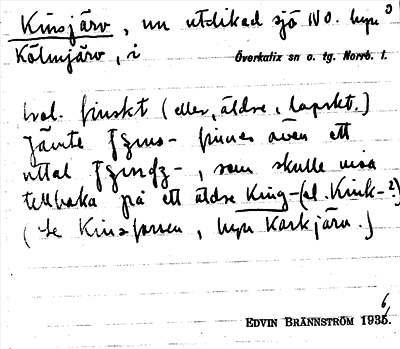 Kinsjärv, nu utdikad sjö NO. byn
Kölmjärv, i Överkalix sn o. tg. Norrb. l.
finskt (eller, äldre, lapskt.)
Jämte finnes även ett
uttal som skulle visa
tillbaka på ett äldre King- (el. Kink-?)
(Se Kinsforsen, byn Karkjärv.)
EDVIN BRÄNNSTRÖM 1936.